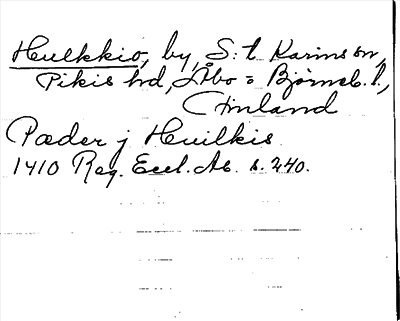 Heulkkio, by, S:t Karins sn,
Pikis hd, Åbo = Björneb. l.,
Finland
Pæder j Heuilkis
1410 Reg. Eccl. Ab. s. 240.